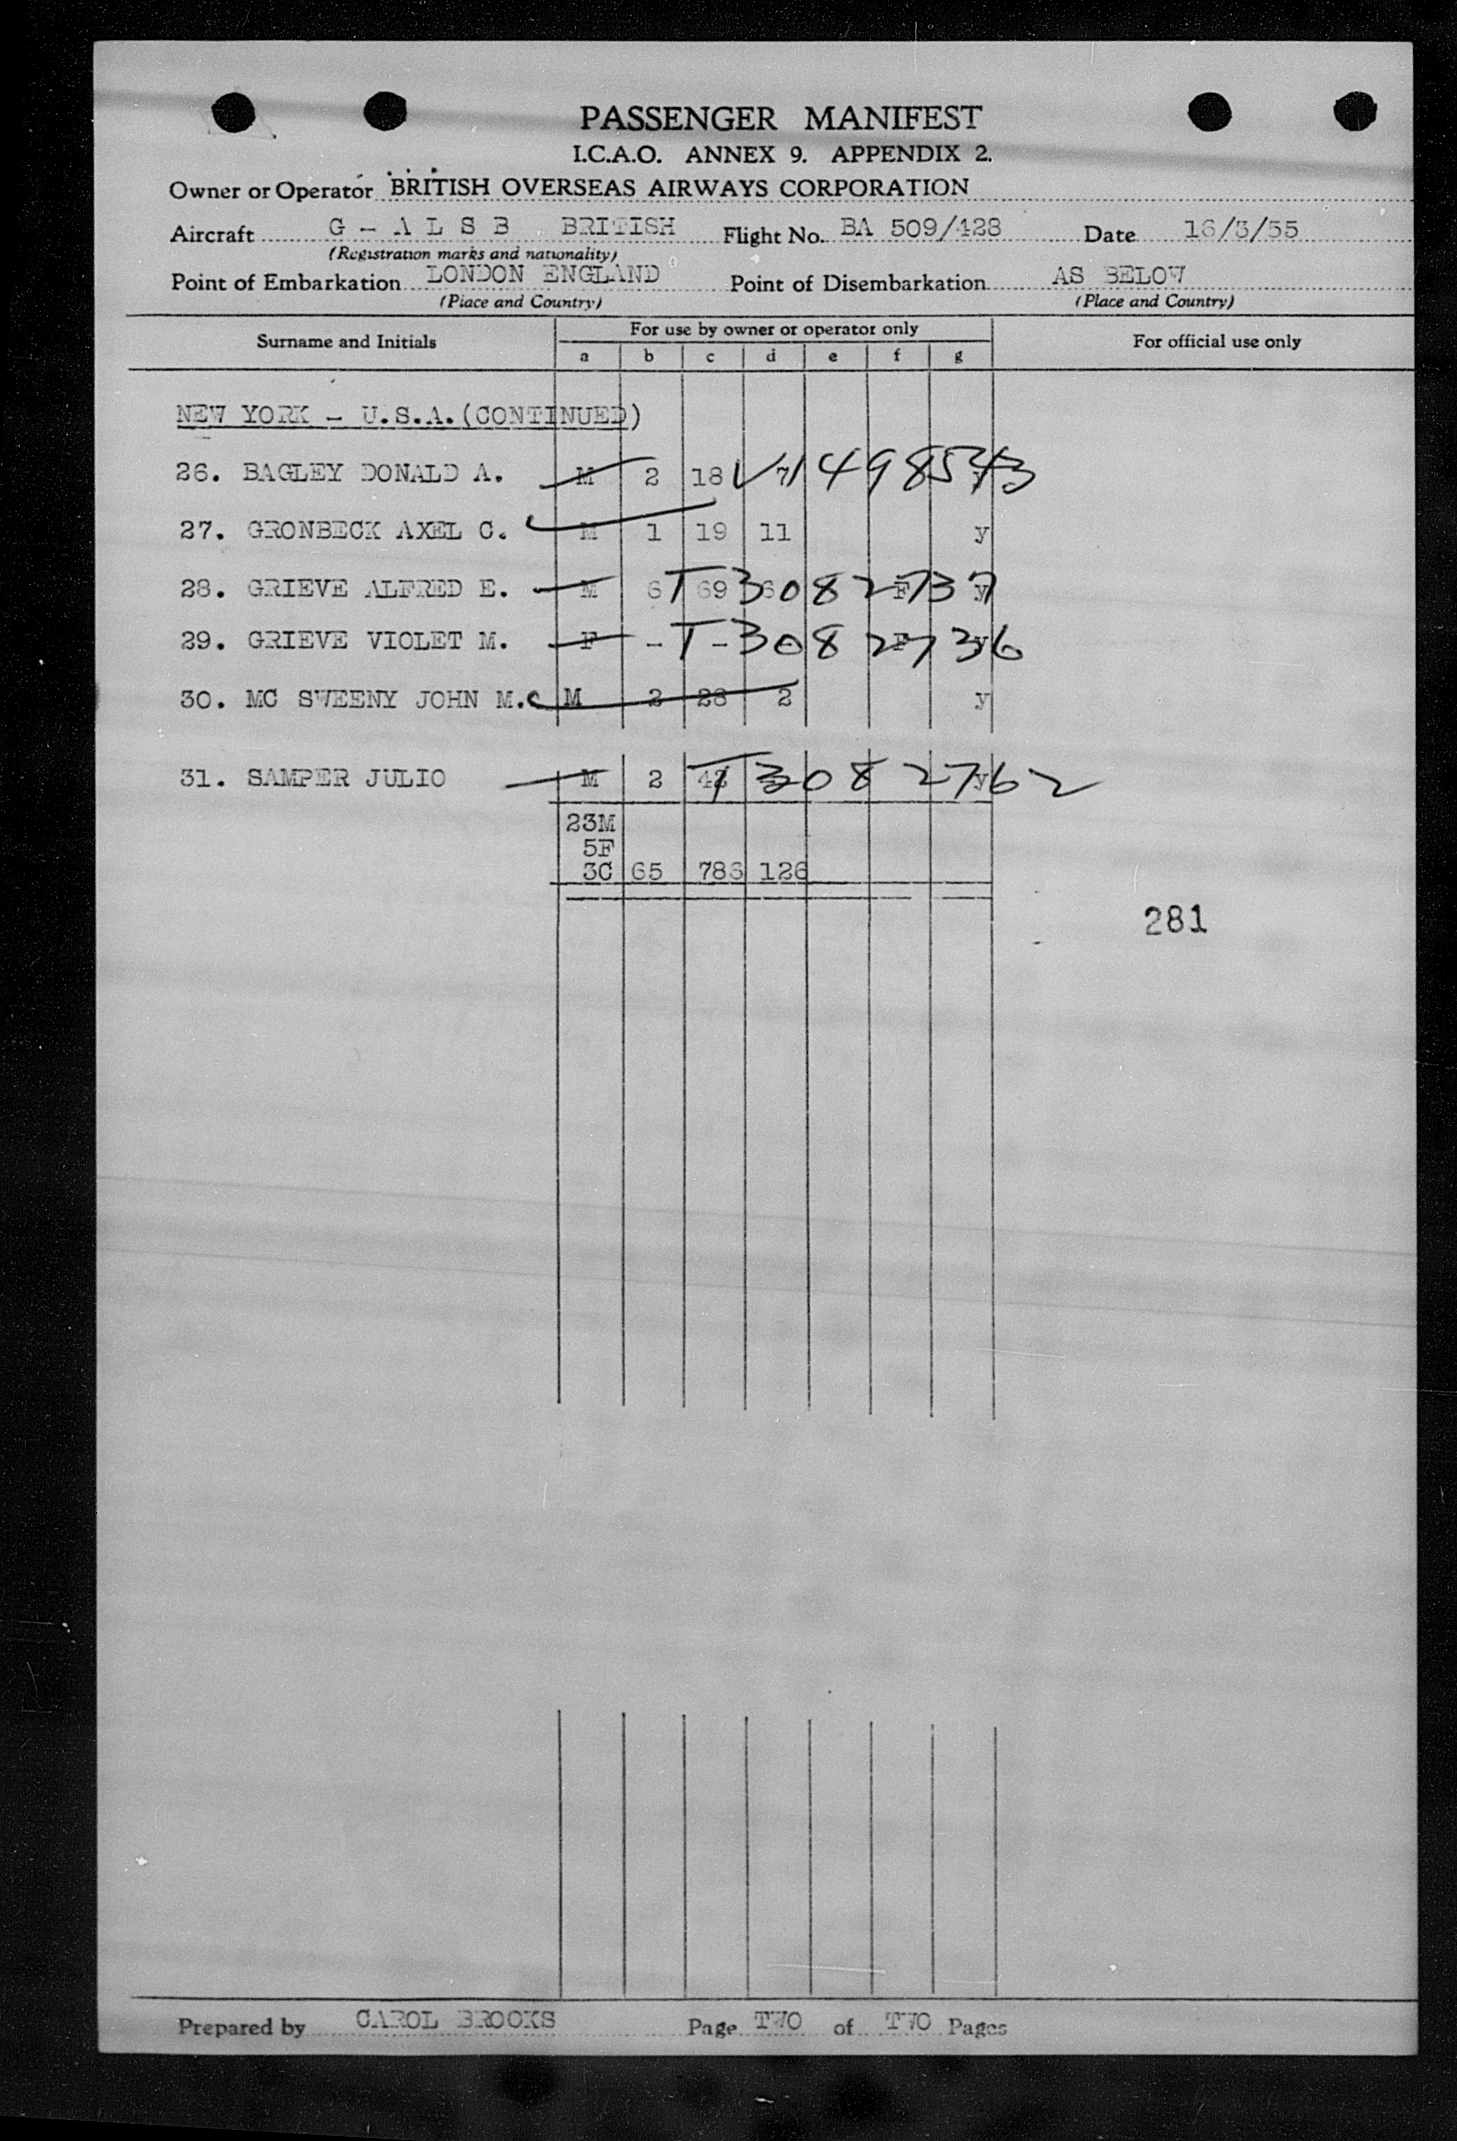 PASSENGER MANIFEST
I.C.A.O. ANNEX 9. APPENDIX 2.
Owner or Operator BRITISH OVERSEAS AIRWAYS CORPORATION
Aircraft G - A L S B BRITISH Flight No. BA 509/428 Date 16/3/55
(Registration marks and nationality)
Point of Embarkation LONDON ENGLAND Point of Disembarkation AS BELOW
(Place and Country) (Place and Country)
Surname and Initials For use by owner or operator only For official use only
a b c d e f g
NEW YORK - U.S.A.(CONTINUED)
26. BAGLEY DONALD A. M 2 18 7 V1498543
27. GRONBECK AXEL C. M 1 19 11 y
28. GRIEVE ALFRED E. M 6 69 T3082737 F y
29. GRIEVE VIOLET M. F - - T-3082736 F y
30. MC SWEENY JOHN M. M 2 28 2 y
31. SAMPER JULIO M 2 T3082762 y
23M
5F
3C 65 786 126
281
Prepared by CAROL BROOKS Page TWO of TWO Pages